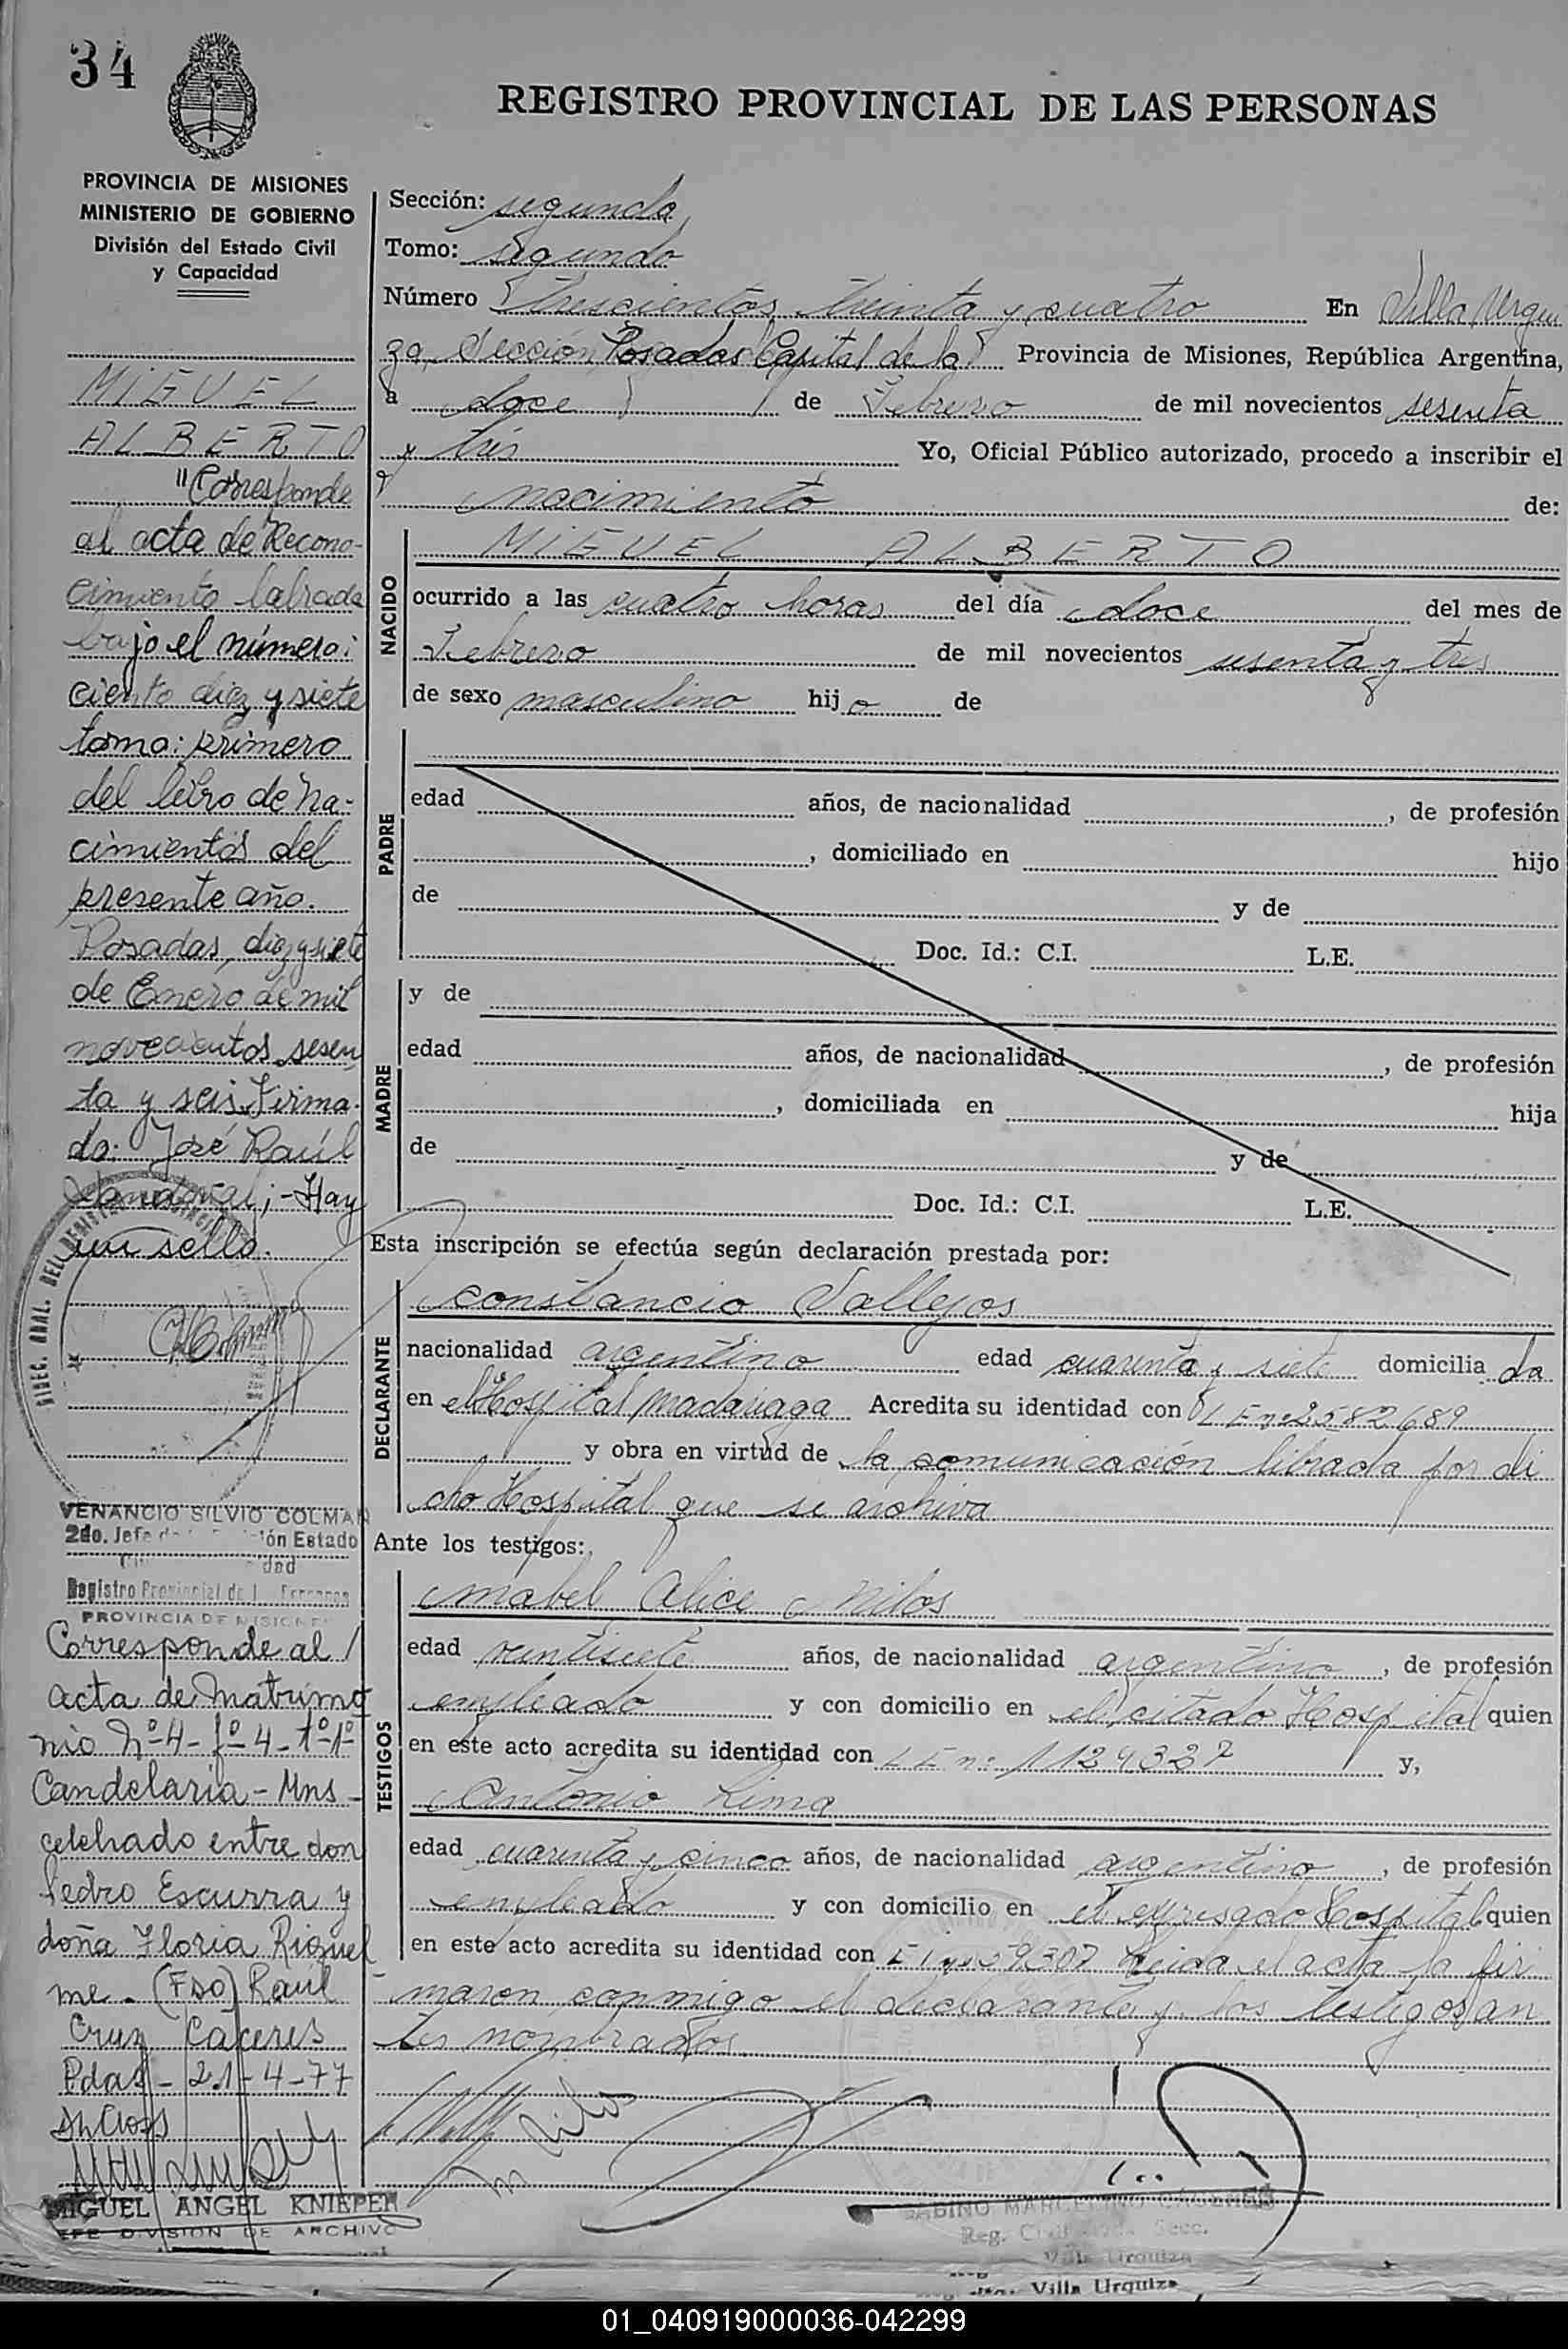 34
REGISTRO PROVINCIAL DE LAS PERSONAS
PROVINCIA DE MISIONES
MINISTERIO DE GOBIERNO
División del Estado Civil
y Capacidad
MIGUEL
ALBERTO
"Corresponde
al acta de Recono-
cimiento labrada
bajo el número:
ciento diez y siete
tomo: primero
del libro de na-
cimientos del
presente año.
Posadas, diez y siete
de Enero de mil
novecientos sesen
ta y seis. Firma-
do: José Raúl
Sandoval; - Hay
un sello.
VENANCIO SILVIO COLMAN
2do. Jefe ón Estado
dad
Registro Provincial de
PROVINCIA DE MISIONES
Corresponde al
acta de Matrimo
nio Nº 4 - fº 4 - tº 1º
Candelaria - Mns -
celebrado entre don
Pedro Escurra y
doña Floria Riquel
me. (Fdo) Raul
Cruz Caceres
Pdas - 21-4-77
MIGUEL ANGEL KNIEPER
JEFE DIVISION DE ARCHIVO
Sección: segunda
Tomo: segundo
Número trescientos treinta y cuatro En Villa Urqui
za Sección Posadas Capital de la Provincia de Misiones, República Argentina,
a doce de Febrero de mil novecientos sesenta
y tres Yo, Oficial Público autorizado, procedo a inscribir el
nacimiento de:
NACIDO
MIGUEL ALBERTO
ocurrido a las cuatro horas del día doce del mes de
Febrero de mil novecientos sesenta y tres
de sexo masculino hijo de
PADRE
edad años, de nacionalidad , de profesión
, domiciliado en hijo
de y de
Doc. Id.: C.I. L.E.
MADRE
y de
edad años, de nacionalidad , de profesión
, domiciliada en hija
de y de
Doc. Id.: C.I. L.E.
Esta inscripción se efectúa según declaración prestada por:
DECLARANTE
Constancio Vallejos
nacionalidad argentino edad cuarenta y siete domicilia da
en el Hospital Madariaga Acredita su identidad con L E nº 2582689
y obra en virtud de la comunicación librada por di
cho Hospital que se archiva
Ante los testigos:
TESTIGOS
Mabel Alice Nilos
edad veintisiete años, de nacionalidad argentina, de profesión
empleado y con domicilio en el citado Hospital quien
en este acto acredita su identidad con L E nº 1124327 y,
Antonio Lima
edad cuarenta y cinco años, de nacionalidad argentino, de profesión
empleado y con domicilio en el expresado Hospital quien
en este acto acredita su identidad con 59307 Leida el acta la fir
maron conmigo el declarante y los testigos an
tes nombrados.
SABINO MARCELINO CACERES
Reg. Civil Secc.
Villa Urquiza
Villa Urquiza
01_040919000036-042299